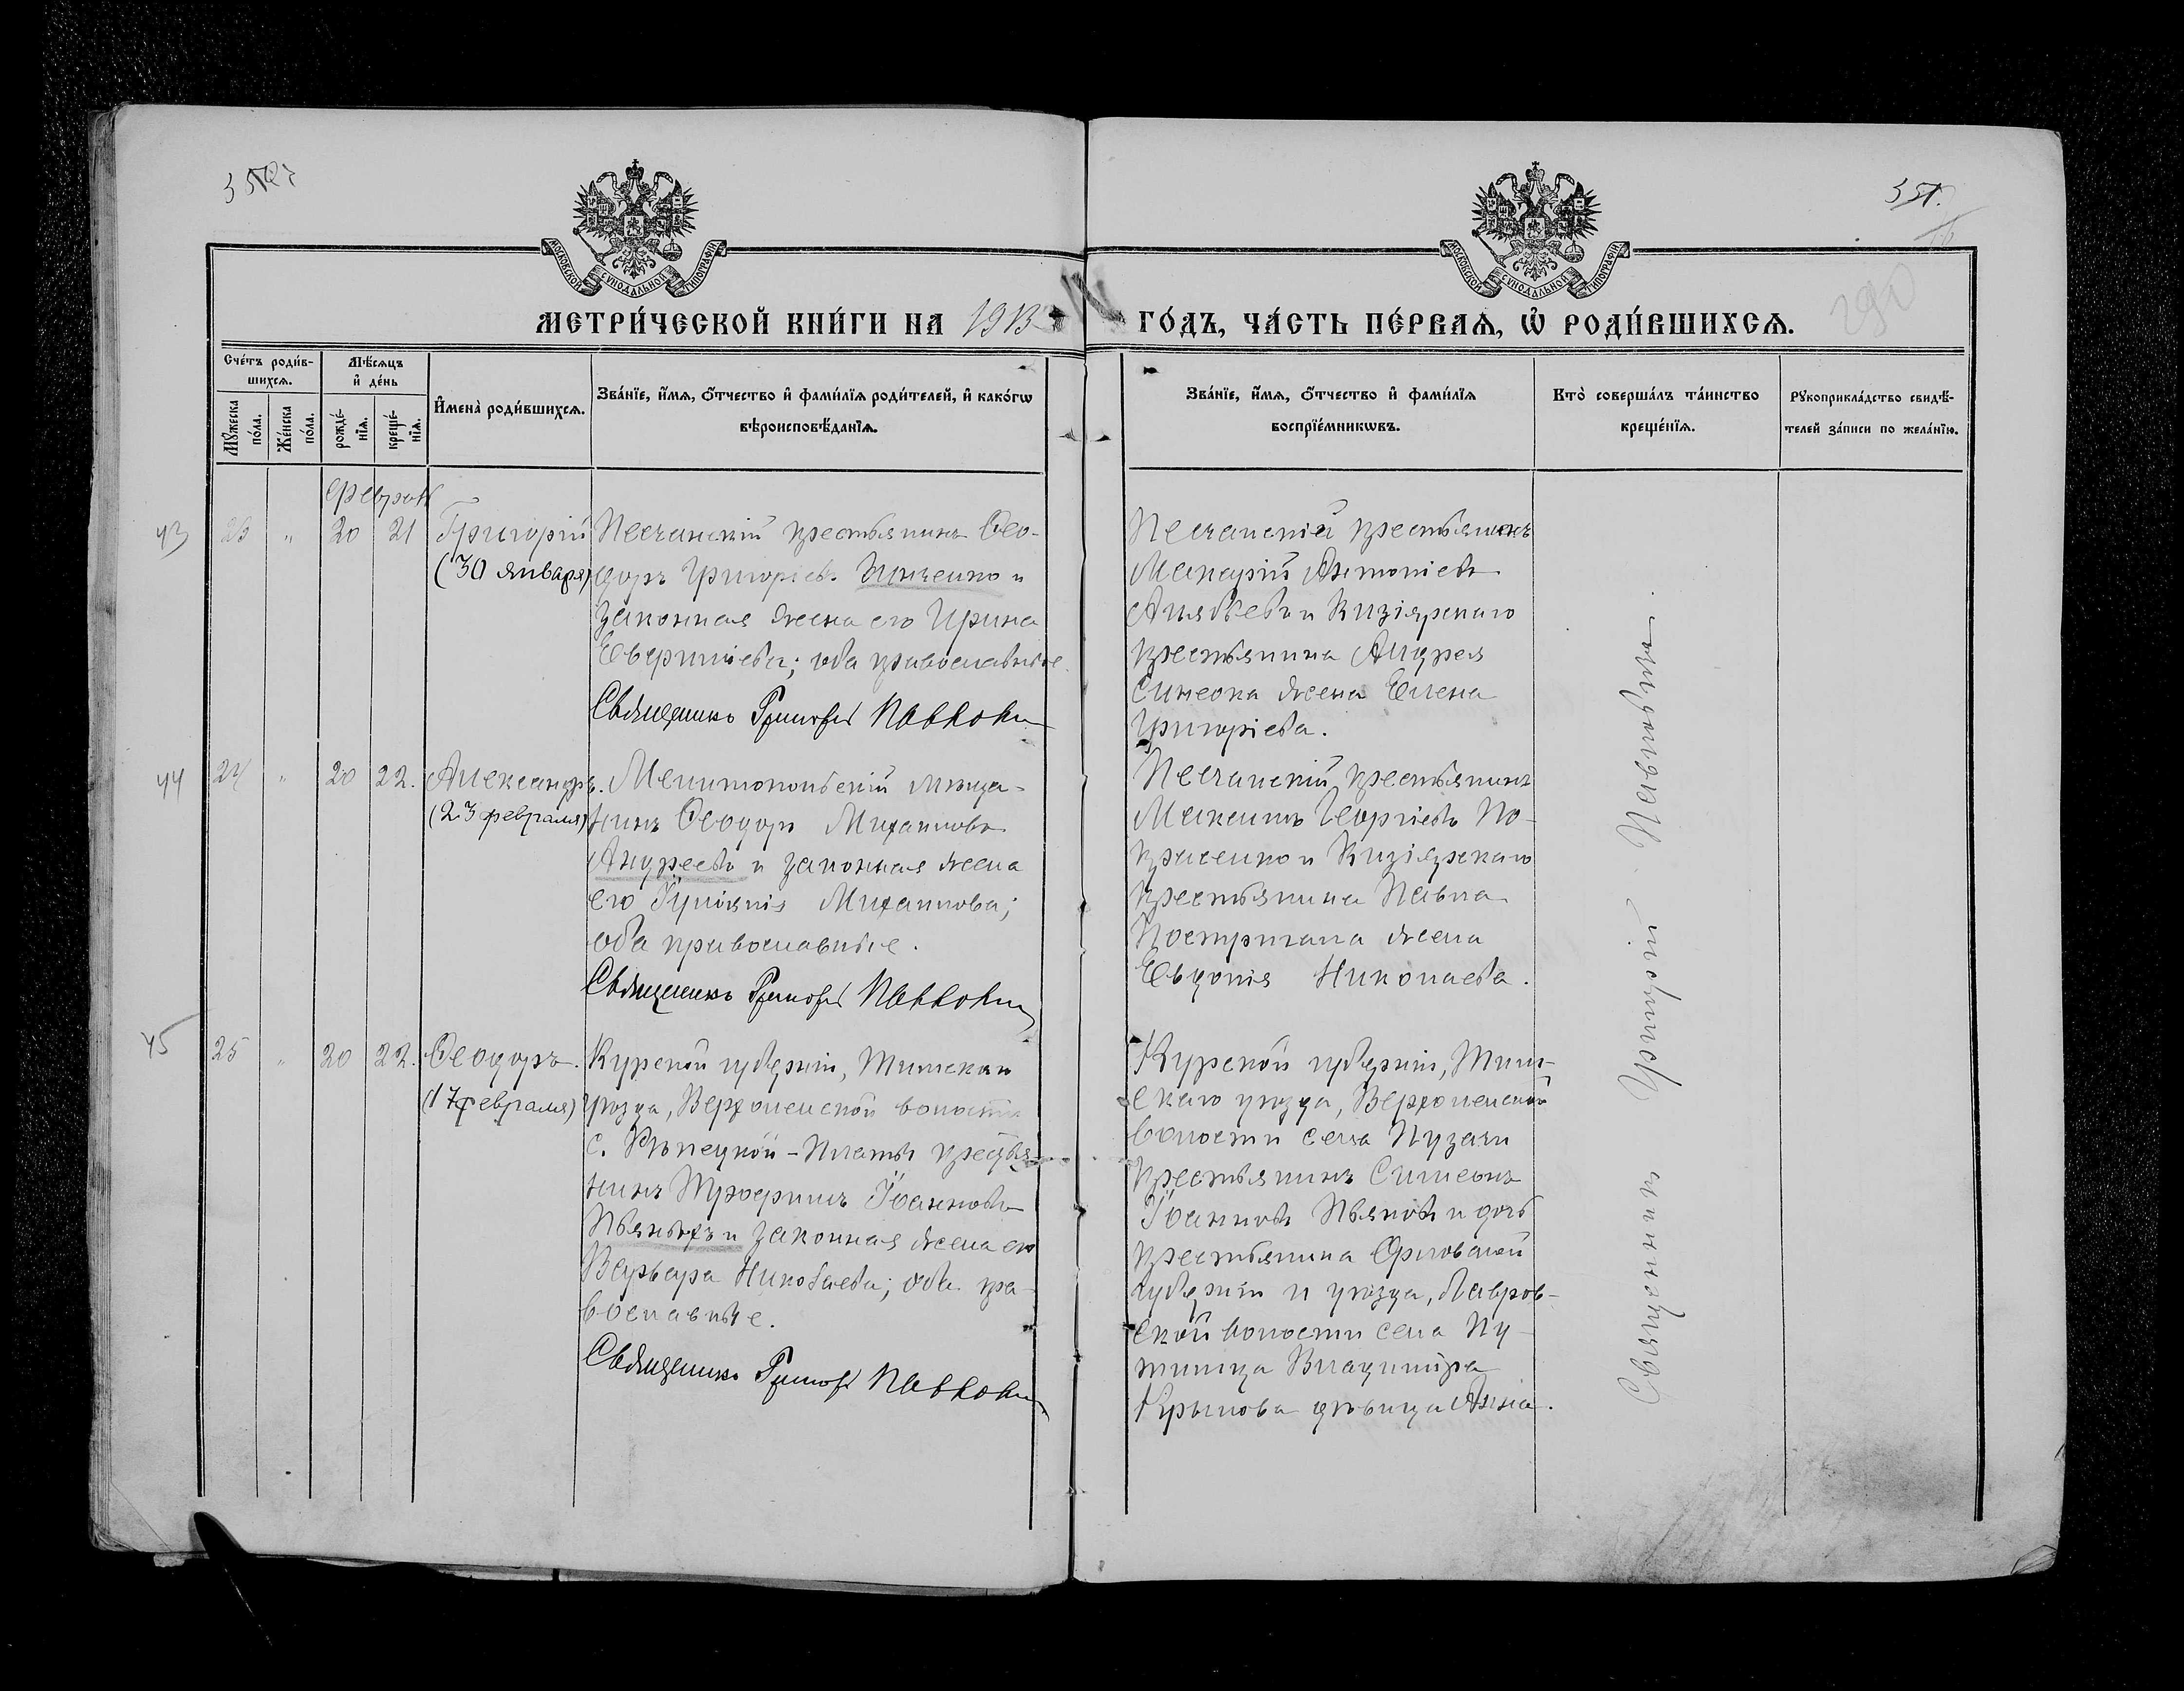 351.
МОСКОВСКОЙ СУНОДАЛЬНОЙ ТИПОГРАФІИ
МОСКОВСКОЙ СУНОДАЛЬНОЙ ТИПОГРАФІИ
290
МЕТРИ́ЧЕСКОЙ КНИ́ГИ НА 1913 ГО́ДЪ, ЧА́СТЬ ПЕ́РВАѦ, Ѡ҆ РОДИ́ВШИХСѦ.
Сче́тъ роди́в-
шихсѧ.
Мѣ́сѧцъ
и҆ де́нь
Мꙋ́жеска
по́ла.
Же́нска
по́ла.
рожде́-
нїѧ.
креще́-
нїѧ.
И҆мена̀ роди́вшихсѧ.
Зва́нїе, и҆́мѧ, ѻ҆́тчество и҆ фами́лїѧ роди́телей, и҆ како́гѡ
вѣроисповѣ́данїѧ.
Зва́нїе, и҆́мѧ, ѻ҆́тчество и҆ фами́лїѧ
воспрїе́мникѡвъ.
Кто̀ соверша́лъ та́инство
креще́нїѧ.
Рꙋкоприкла́дство свидѣ́-
телей за́писи по жела́нїю.
43
23
"
20
21
Григорій
(30 января)
Песчанскій крестьянинъ Ѳео-
доръ Григоріевъ Кнченко и
законная жена его Ирина
оба православные
Священникъ Григорій Павловичъ
Песчанскій крестьянинъ
Макарій Антоніевъ
и Кизіярскаго
крестьянина Андрея
Синеока жена Елена
Григоріева.
44
24
"
20
22.
Александръ.
(23 февраля)
Мелитопольскій мѣща-
нинъ Ѳеодоръ Михаиловъ
Андреевъ и законная жена
его Іуліанія Михаилова;
оба православные.
Священникъ Григорій Павловичъ
Песчанскій крестьянинъ
Максимъ Георгіевъ По-
и Кизіярскаго
крестьянина Павла
Постригача жена
Евдокія Николаева.
45
25
"
20
22.
Ѳеодоръ.
(17 февраля)
Курской губерніи, Тимскаго
уѣзда, Верхоленской волости
с. Рѣпецкой-Платы крестья-
нинъ Трофимъ Іоанновъ
Пьяныхъ и законная жена его
Варвара Николаева; оба пра-
вославные.
Священникъ Григорій Павловичъ
Курской губерніи, Тим-
скаго уѣзда, Верхоленской
волости села Пузачи
крестьянинъ Симеонъ
Іоанновъ Пьяновъ и дочь
крестьянина Орловской
губерніи и уѣзда, Лавров-
ской волости села Пу-
тимца Владиміра
Крылова дѣвица Анна.
Священникъ Григорій Павловичъ.